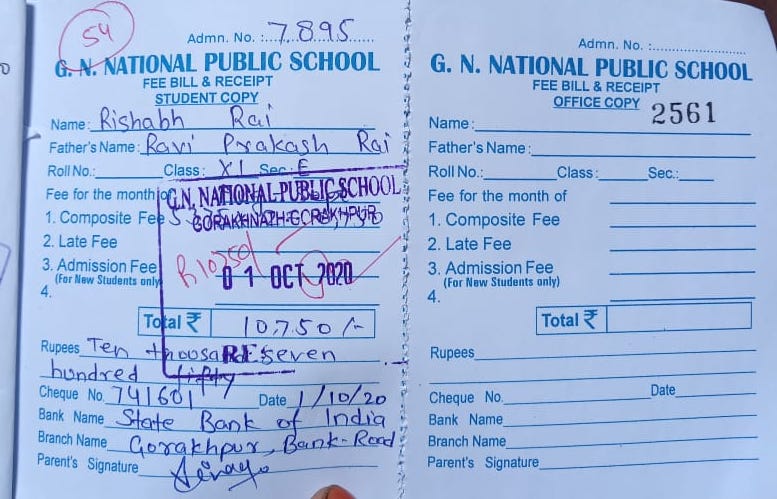 54
Admn. No. :7895
G. N. NATIONAL PUBLIC SCHOOL
FEE BILL & RECEIPT
STUDENT COPY
Name: Rishabh Rai
Father's Name: Ravi Prakash Rai
Roll No.: Class: XI Sec: E
Fee for the month of
G.N. NATIONAL PUBLIC SCHOOL
1. Composite Fee
GORAKHNATH-GORAKHPUR
2. Late Fee
3. Admission Fee
(For New Students only)
01 OCT 2020
4.
Total ₹ 10,750/-
Rupees Ten thousand seven
hundred fifty
Cheque No. 741601 Date 1/10/20
Bank Name State Bank of India
Branch Name Gorakhpur, Bank-Road
Parent's Signature
Admn. No. :
G. N. NATIONAL PUBLIC SCHOOL
FEE BILL & RECEIPT
OFFICE COPY 2561
Name:
Father's Name:
Roll No.: Class: Sec.:
Fee for the month of
1. Composite Fee
2. Late Fee
3. Admission Fee
(For New Students only)
4.
Total ₹
Rupees
Cheque No. Date
Bank Name
Branch Name
Parent's Signature